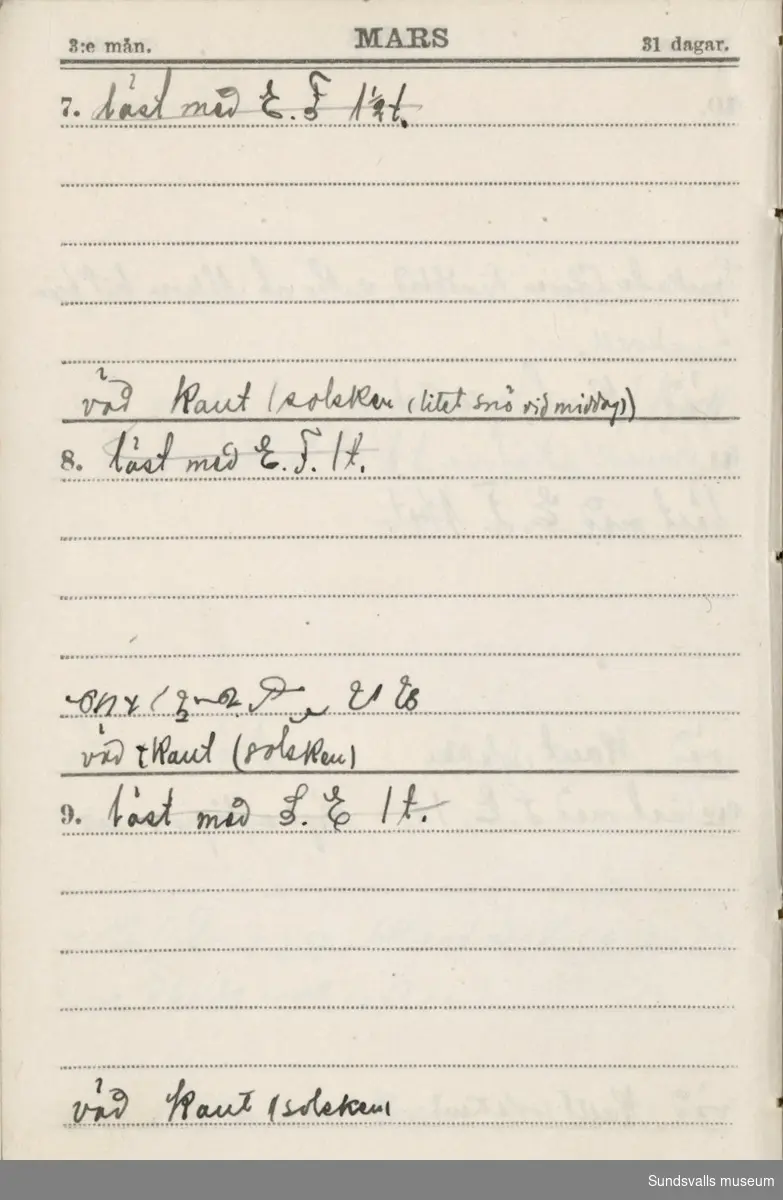 3:e mån. MARS 31 dagar.
7. läst med E. F 1½ t.
väd kaut (solsken (litet snö vid middag))
8. läst med E. F. 1 t.
väd kaut (solsken)
9. läst med E 1 t.
väd kaut (solsken)
Sundsvalls museum